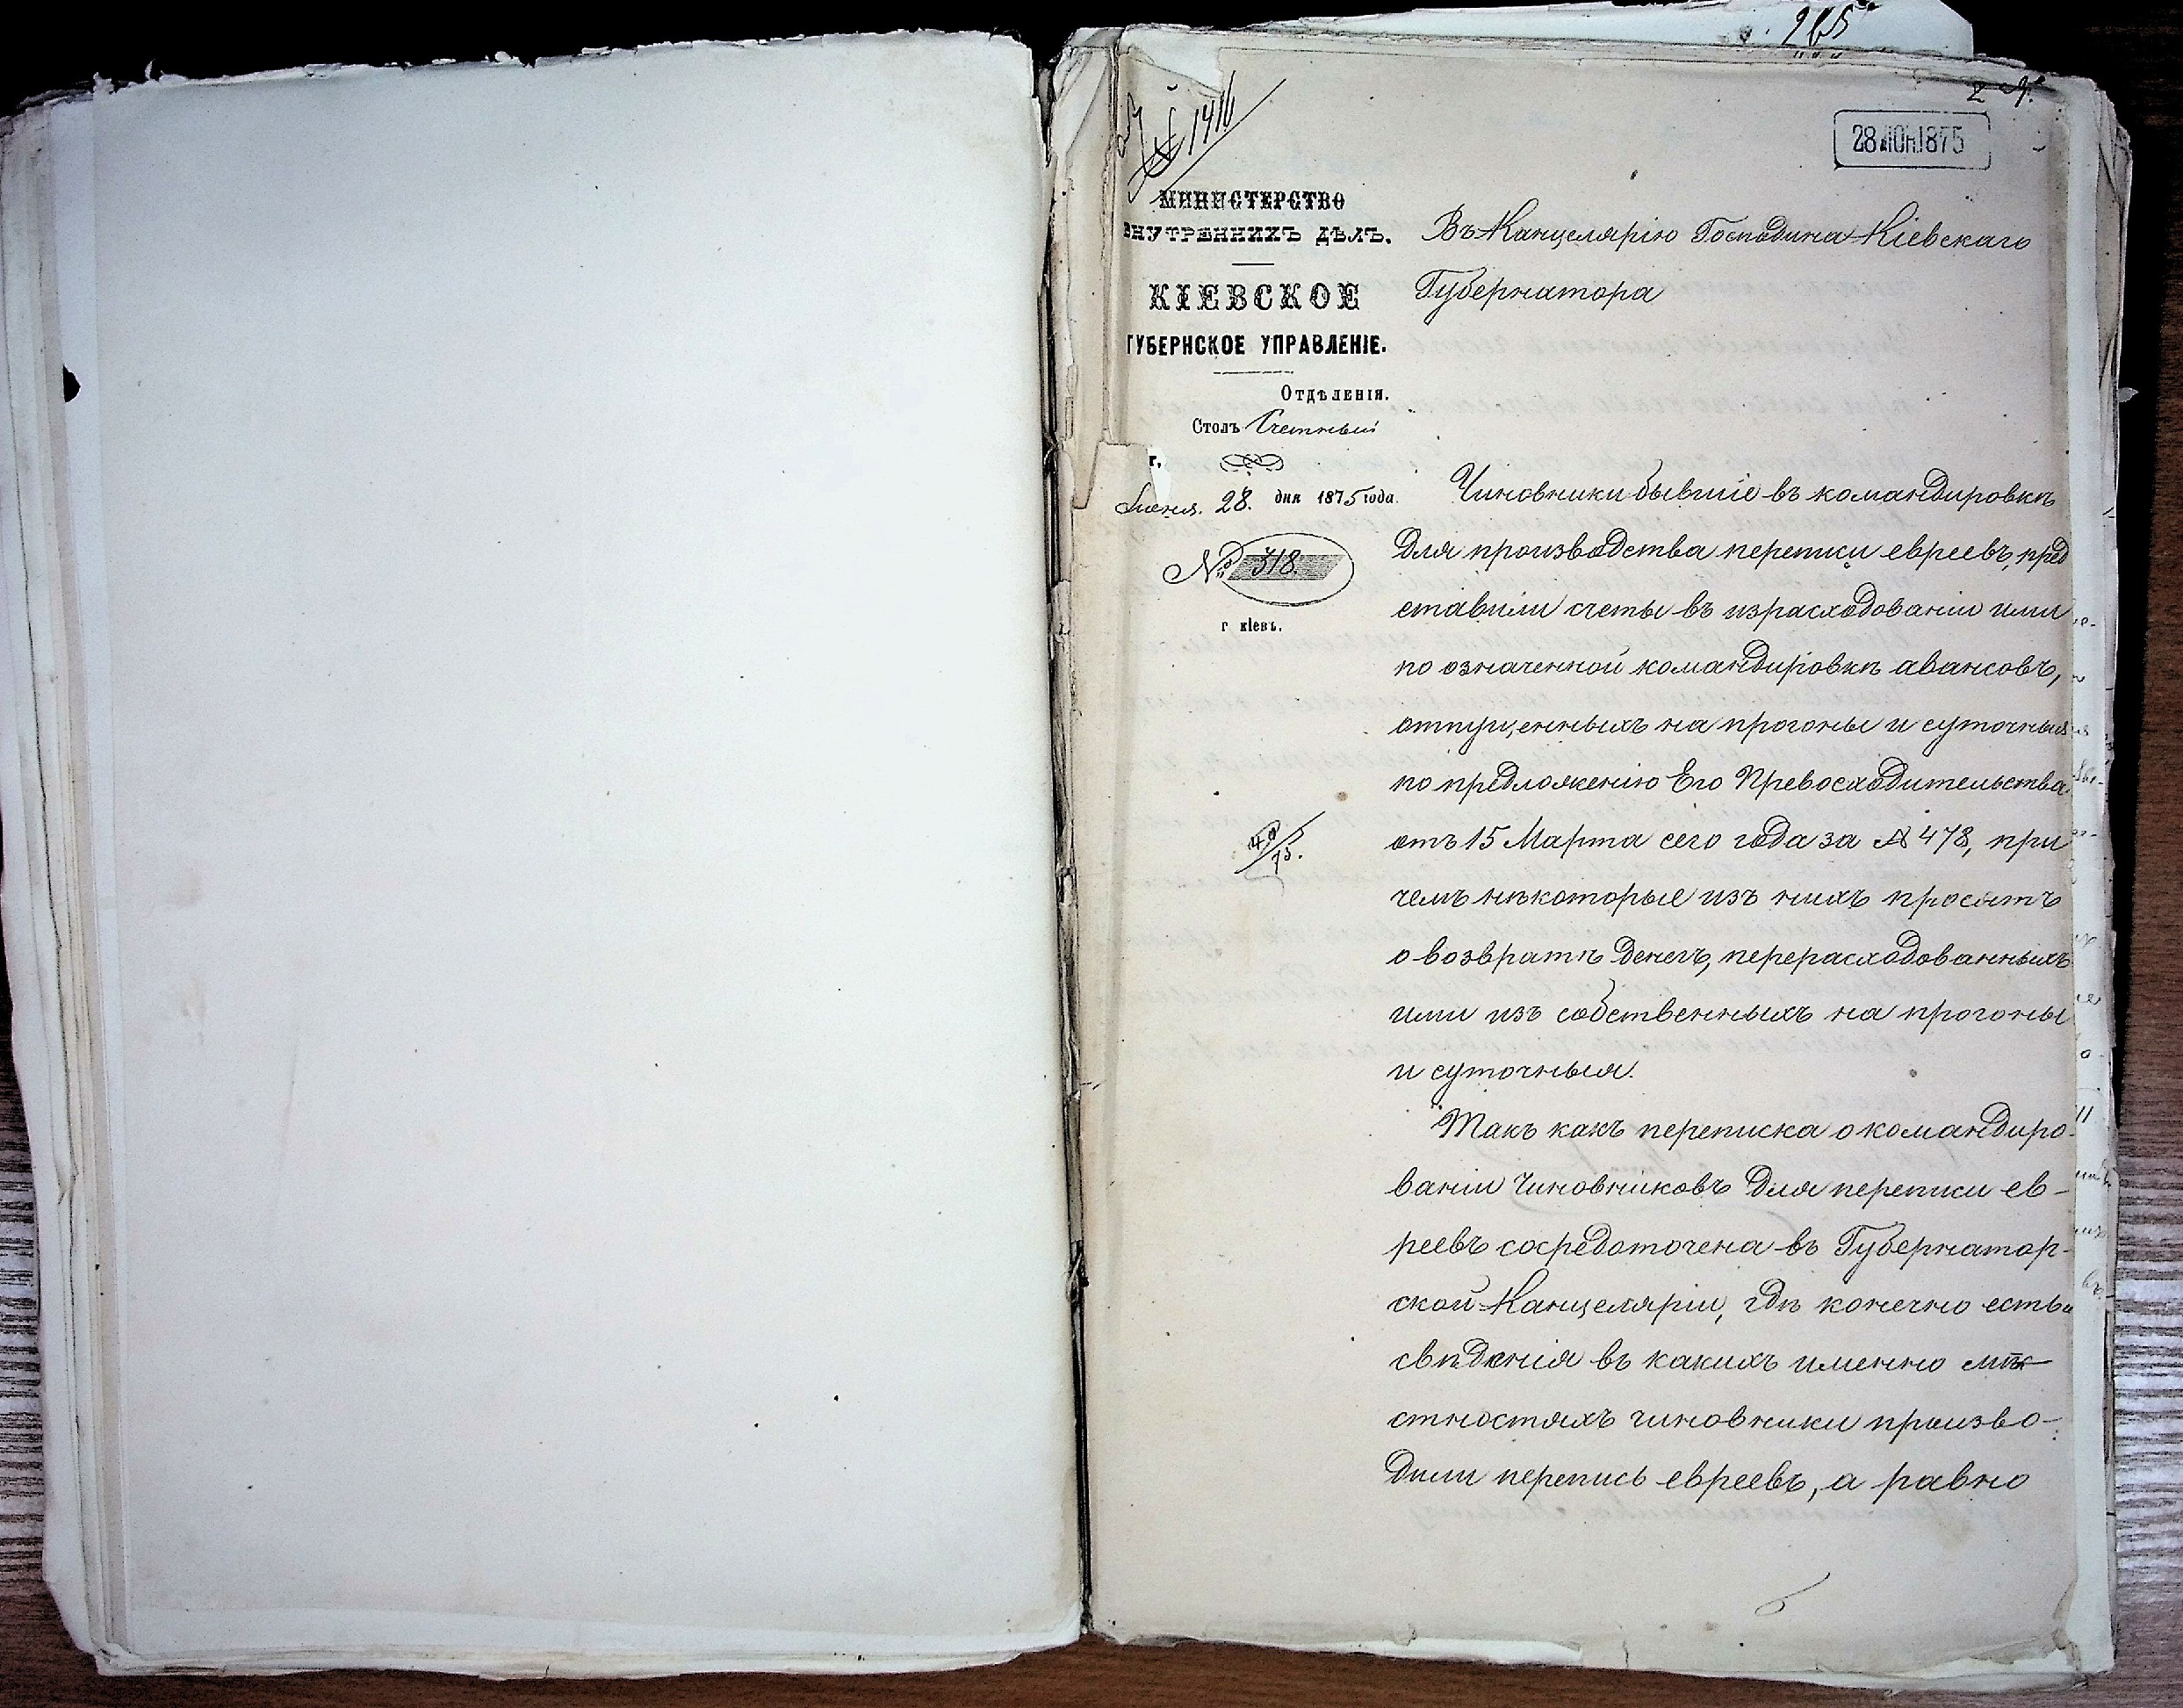 № 1416
28 ІЮН 1875
МИНИСТЕРСТВО
ВНУТРЕННИХЪ ДѢЛЪ.
КІЕВСКОЕ
ГУБЕРНСКОЕ УПРАВЛЕНІЕ.
Отдѣленія.
Столъ Счетный
г.
Іюня 28 дня 1875 года.
№ 318.
г. кіевъ.
Въ Канцелярію Господина Кіевскаго
Губернатора
Чиновники бывшіе въ командировкѣ
для производства переписи евреевъ, пред
ставили счеты въ израсходованіи ими
по означенной командировкѣ авансовъ,
отпущенныхъ на прогоны и суточныя
по предложенію Его Превосходительства
отъ 15 Марта сего года за № 478, при
чемъ нѣкоторые изъ нихъ просятъ
о возвратѣ денегъ, перерасходованныхъ
ими изъ собственныхъ на прогоны
и суточныя.
Такъ какъ переписка о командиро-
ваніи чиновниковъ для переписи ев-
реевъ сосредоточена въ Губернатор-
ской Канцеляріи, гдѣ конечно есть
свѣдѣнія въ какихъ именно мѣ-
стностяхъ чиновники произво-
дили перепись евреевъ, а равно